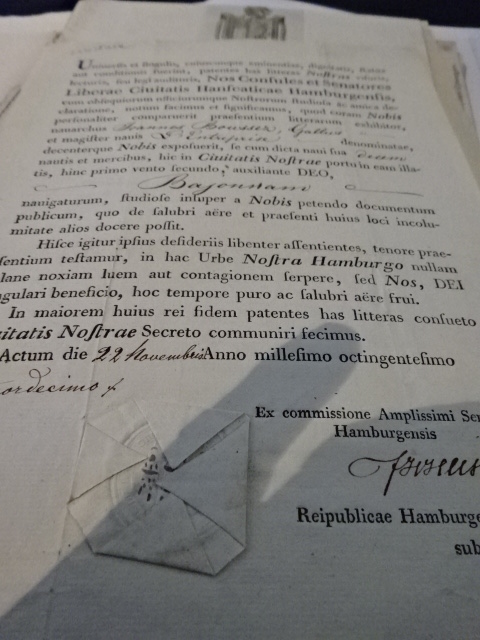 Universis et singulis, cuiuscunque eminentiae, dignitatis, status
aut conditionis fuerint, patentes has litteras Nostras visuris,
lecturis, seu legi audituris, Nos Consules et Senatores
Liberae Ciuitatis Hanseaticae Hamburgensis,
cum obsequiorum officiorumque Nostrorum studiosa ac amica de-
claratione, notum facimus et significamus, quod coram Nobis
personaliter comparuerit praesentium litterarum exhibitor,
nauarchus Gallus
et magister nauis denominatae,
decenterque Nobis exposuerit, se cum dicta naui sua
nautis et mercibus, hic in Ciuitatis Nostrae portu in eam illa-
tis, hinc primo vento secundo, auxiliante DEO,
Bajonnam
nauigaturum, studiose insuper a Nobis petendo documentum
publicum, quo de salubri aëre et praesenti huius loci incolu-
mitate alios docere possit.
Hisce igitur ipsius desideriis libenter assentientes, tenore prae-
sentium testamur, in hac Urbe Nostra Hamburgo nullam
plane noxiam luem aut contagionem serpere, sed Nos, DEI
ngulari beneficio, hoc tempore puro ac salubri aëre frui.
In maiorem huius rei fidem patentes has litteras consueto
uitatis Nostrae Secreto communiri fecimus.
Actum die 22 Novembris Anno millesimo octingentesimo
ordecimo
Ex commissione Amplissimi Sen
Hamburgensis
Reipublicae Hamburge
sub